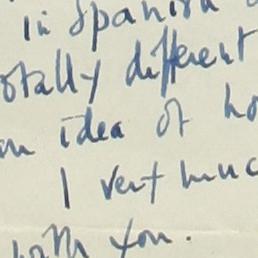 in Spanish
totally different
an idea of
I very much
you.